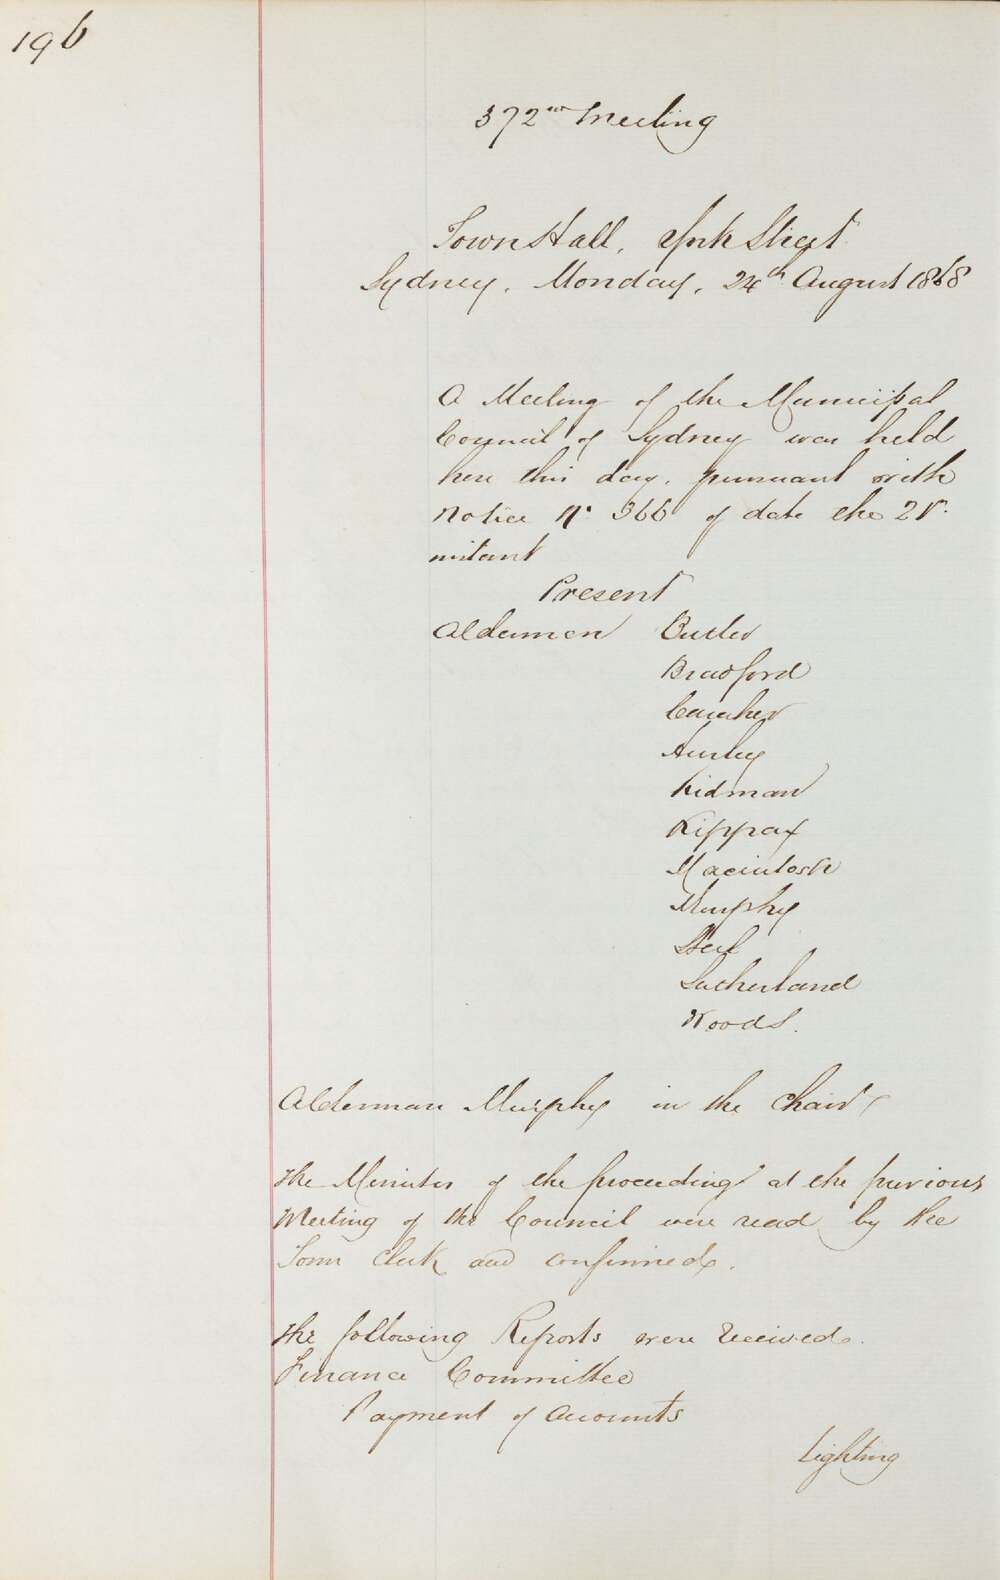 196
372nd Meeting
Town Hall, York Street
Sydney, Monday, 24th August 1868
A Meeting of the Municipal
Council of Sydney was held
here this day, pursuant with
Notice No 366 of date the 21st
instant
Present
Aldermen Butler
Bradford
Caraher
Hurley
Kidman
Kippax
Macintosh
Murphy
Steel
Sutherland
Woods.
Alderman Murphy in the Chair
The Minutes of the proceedings at the previous
Meeting of the Council were read by the
Town Clerk and confirmed.
The following Reports were received.
Finance Committee
Payment of Accounts
Lighting